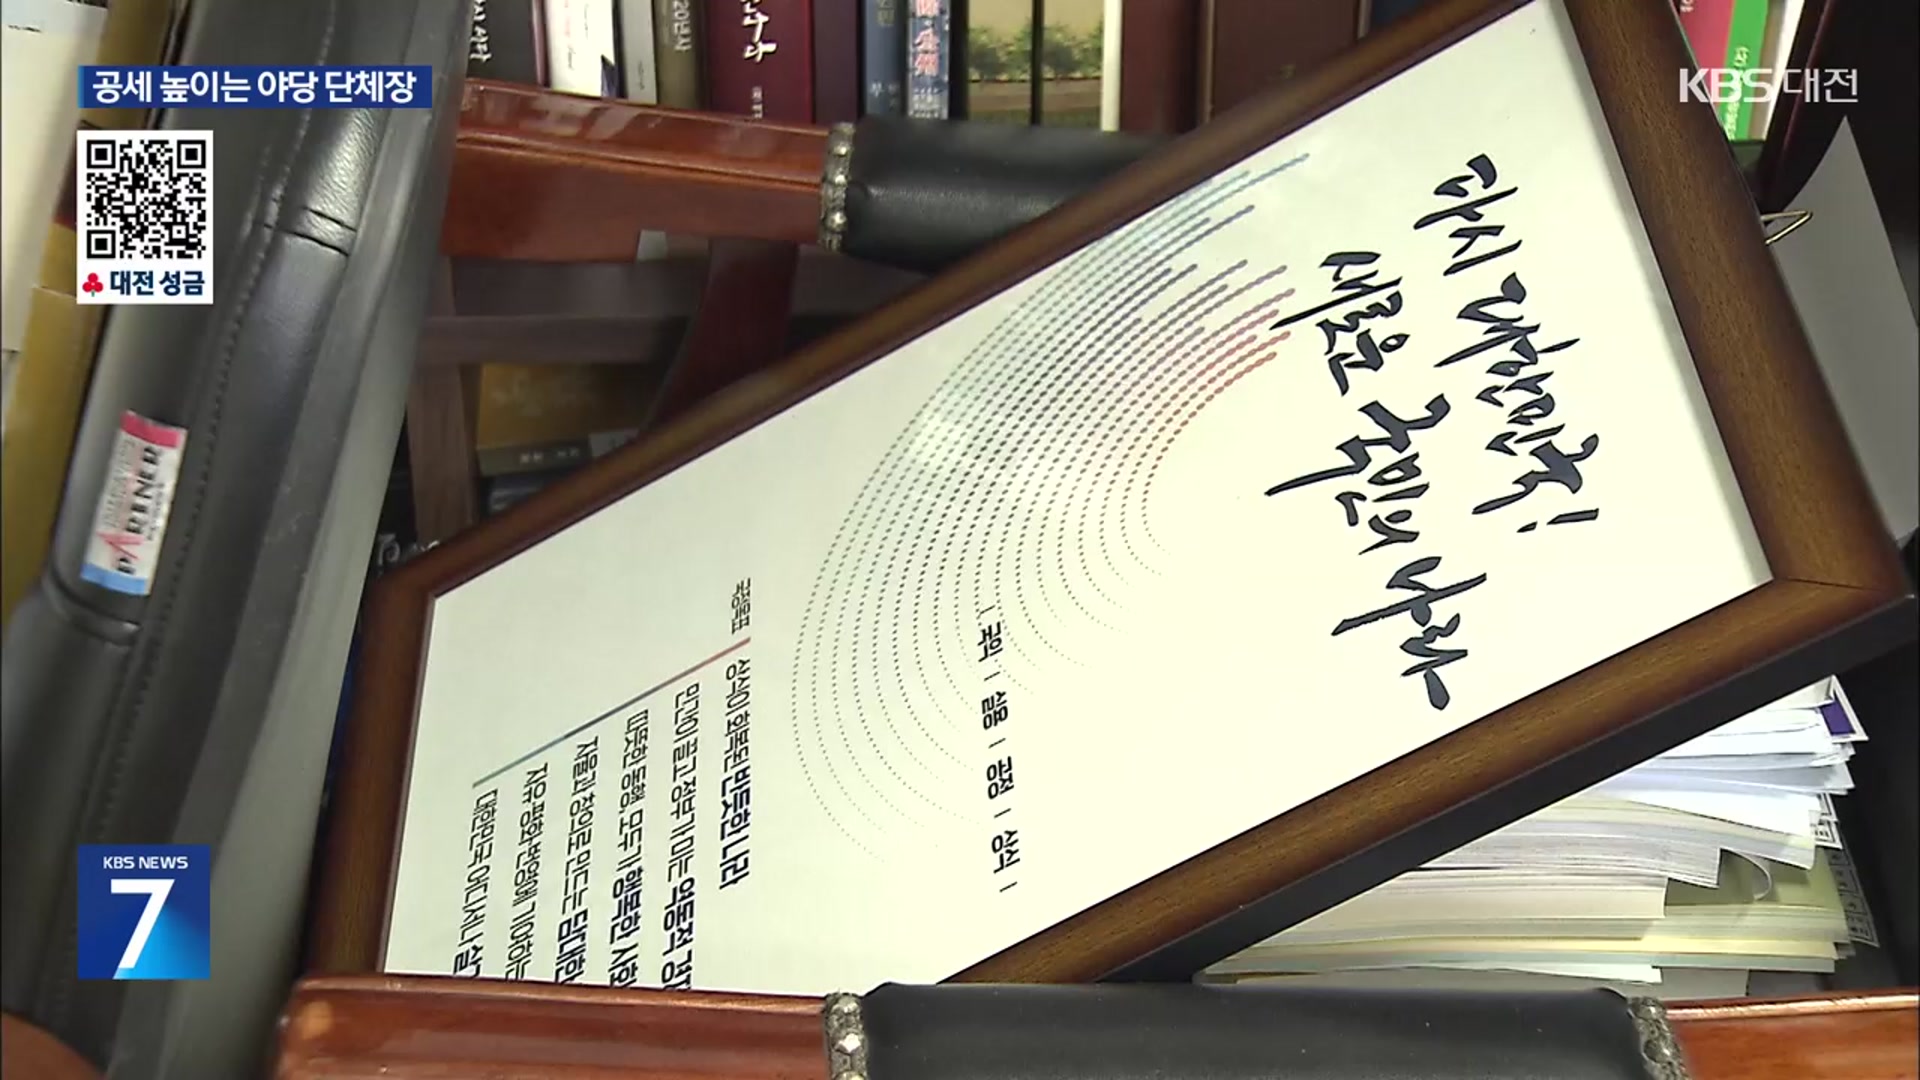 공세 높이는 야당 단체장
KBS대전
대전 성금
다시 대한민국!
새로운 국민의 나라
| 국익 | 실용 | 공정 | 상식 |
국정목표
상식이 회복된 반듯한 나라
민간이 끌고 정부가 미는 역동적 경제
따뜻한 동행, 모두가 행복한 사회
자율과 창의로 만드는 담대한
자유, 평화, 번영에 기여하는
대한민국 어디서나 살기
KBS NEWS
7
20년사